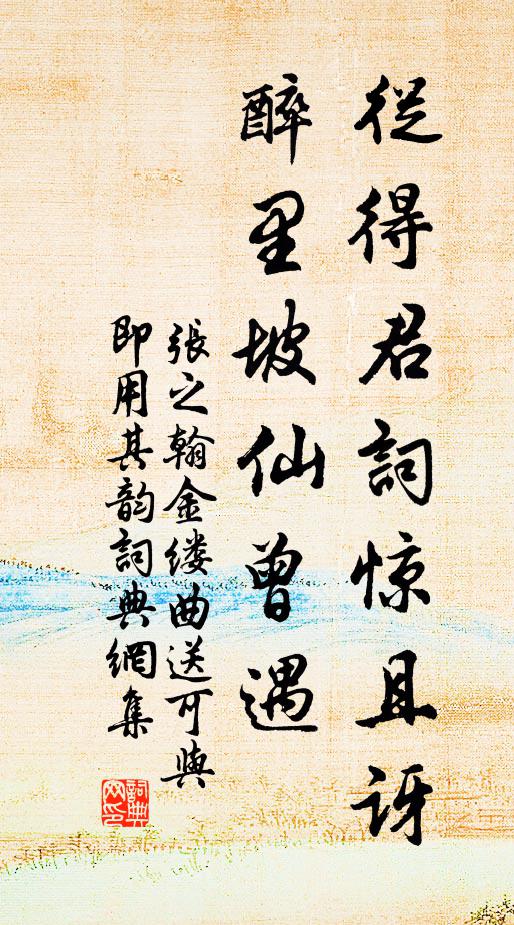 從得君詞惊且讶
醉里坡仙曾遇
張之翰金缕曲送可與
即用其韵詞典網集
詞典网印